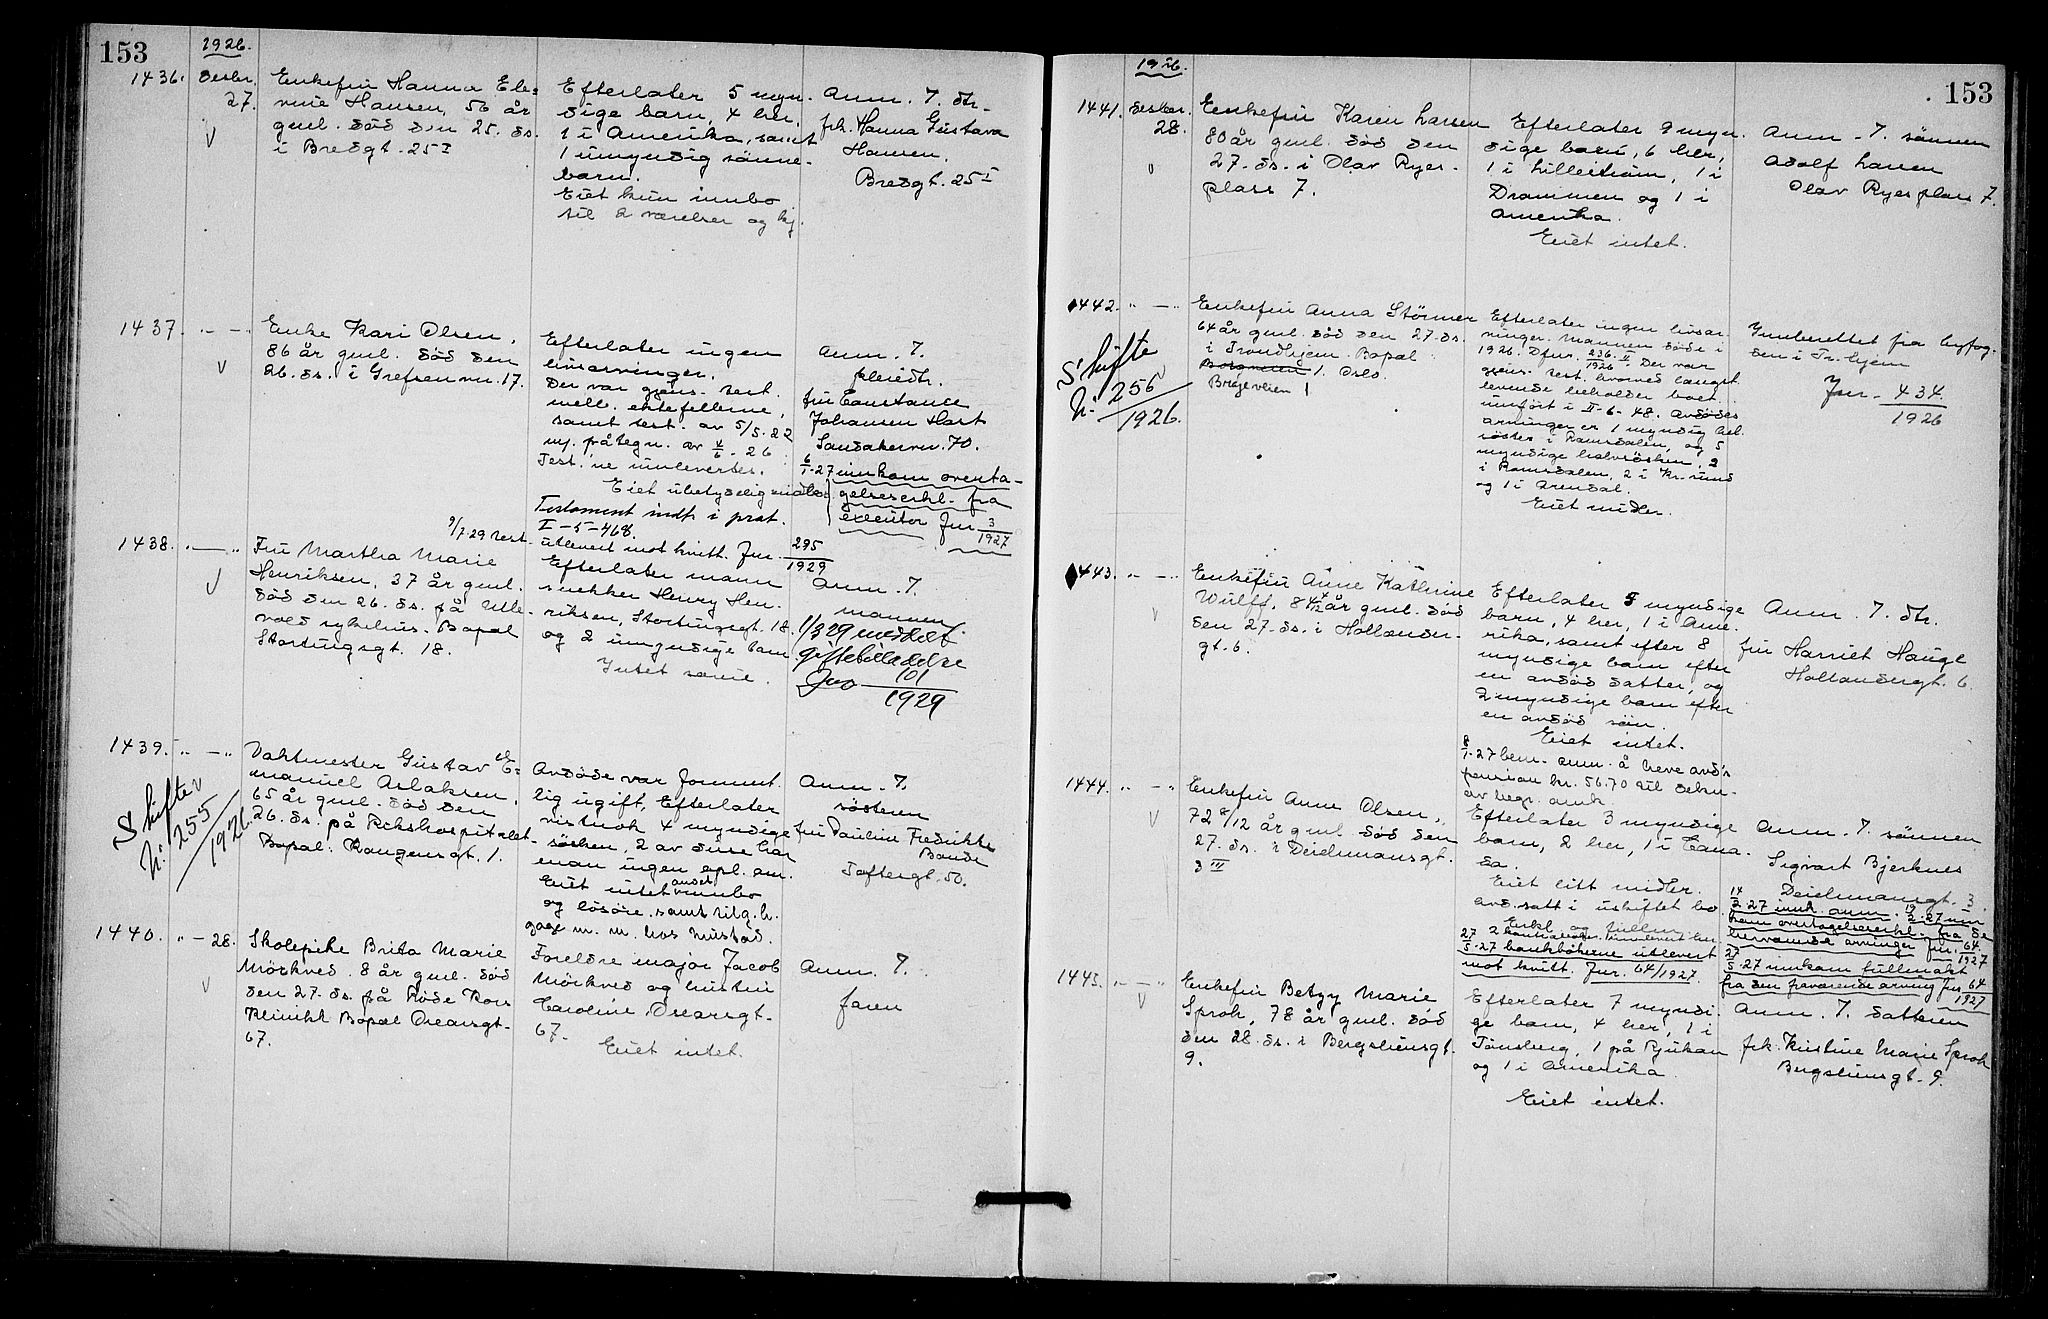 153
1926.
1436. Desbr. 27.
Enkefru Hanna Ele=
nine Hansen, 56 år
gml. död den 25. ds.
i Bredgt. 25 I
Efterlater 5 myn-
dige barn, 4 her,
1 i Amerika, samt
1 umyndig sönne-
barn.
Eiet kun innbo
til 2 værelser og kj.
Anm. 7. dtr.
frk. Hanna Gustava
Hansen.
Bredgt. 25 I
1437. " — "
Enke Kari Olsen,
86 år gml. död den
26. ds. i Grefsenvn. 17.
Efterlater ingen
livsarvinger.
Der var gjens. test.
mell. ektefellerne,
samt test. av 5/5. 22
m/ påtegn. av 4/6 - 26.
Test.'ne innlevertes.
Eiet ubetydelig midler
Testament indf. i prot.
I - 5 - 468.
9/7 29 test.
utlevert mot kvitt. Jnr. 295/1929
Anm. 7.
pleiedtr.
fru Constance
Johansen Hart
Sandakervn. 70.
6/1-27 innkom overta-
gelseserkl. fra
executor Jnr 3/1927
1438. " — "
Fru Martha Marie
Henriksen, 37 år gml.
död den 26. ds. på Ulle-
vold sykehus. Bopæl
Stortingsgt. 18.
Efterlater mann
snekker Henry Hen-
riksen, Stortingsgt. 18.
og 2 umyndige barn.
Intet særeie.
Anm. 7.
mannen.
1/3 29 meddelt
giftebilladelse
Jno 101/1929
1439. " — "
Skifte
N: 255/1926
Vaktmester Gustav E=
manuel Aslaksen,
65 år gml. död den
26. ds. på Rikshospitalet.
Bopæl: Kaugensgt. 1.
Avdöde var forment-
lig ugift, Efterlater
vistnok 4 myndige
sösken, 2 av disse har
man ingen opl. om.
Eiet intet andet innbo
og lösöre, samt tilg. h.
gods m. m. hos Mustad.
Anm. 7.
sösteren
fru Pauline Fredrikke
Bonde
Toftesgt. 50.
1440. " — 28.
Skolepike Brita Marie
Mörkved. 8 år gml. död
den 27. ds. på Röde Kors
Klinikk Bopæl Oscarsgt.
67.
Foreldre major Jacob
Mörkved og hustru
Caroline, Oscarsgt.
67.
Eiet intet.
Anm. 7.
faren
153
1926.
1441. Desbr. 28.
Enkefru Karen Larsen
80 år gml. död den
27. ds. i Olav Ryes-
plass 7.
Efterlater 9 myn-
dige barn, 6 her,
1 i Lilleström, 1 i
Drammen og 1 i
Amerika.
Eiet intet.
Anm. 7. sönnen
Adolf Larsen
Olav Ryes plass 7.
1442. " — "
Skifte
N: 256/1926.
Enkefru Anna Störmer
64 år gml. död den 27. ds.
i Trondhjem. Bopæl
1. Oslo.
Brejeveien 1
Efterlater ingen livsar-
vinger. Mannen döde i
1926. Dfnr. 236. II/1926. Der var
gjens. test. hvorved længst
levende beholder boet
innfört i II-6-48. Avdödes
arvinger er 1 myndig hel-
söster i Romsdalen, og 5
myndige halvsösken, 2
i Romsdalen, 2 i Kr.sund
og 1 i Arendal.
Eiet midler.
Innberettet fra byfog-
den i Tr.hjem
Jnr. 434/1926
1443. " — "
Enkefru Anne Kathrine
Wulff, 84 4/12 år gml. död
den 27. ds. i Hollender-
gt. 6.
Efterlater 5 myndige
barn, 4 her, 1 i Ame-
rika, samt efter 8
myndige barn efter
en avdöd datter, og
2 myndige barn efter
en avdöd sön.
Eiet intet.
8/1-27 bem. anm. å heve avd's
pension kr. 56.70 til dekn.
av begr. omk.
Anm. 7. dtr.
fru Harriet Hauge
Hollendergt. 6.
1444. " — "
Enkefru Anne Olsen,
72 8/12 år gml. död den
27. ds. i Deichmansgt.
3 III
Efterlater 3 myndige
barn, 2 her, 1 i Cana-
da.
Eiet litt midler.
Avd. satt i uskiftet bo
27/5-27 bankbökerne utlevert
mot kvitt. Jnr. 64/1927.
Anm. 7. sönnen
Sigvart Bjerknes
Deichmansgt. 3.
14/2 27 innk. anm. 19/2-27 inn
kom overtagelseserkl. fra de
herværende arvinger Jnr. 64/1927
27/5 27 innkom fullmakt
fra den fraværende arving Jnr 64/1927
1445. " — "
Enkefru Betzy Marie
Sproh, 78 år gml. död
den 28. ds. i Bergsliensgt.
9.
Efterlater 7 myndi-
ge barn, 4 her, 1 i
Tönsberg, 1 på Rjukan
og 1 i Amerika
Eiet intet.
Anm. 7. datteren
frk. Kristine Marie Sproh
Bergsliensgt. 9.